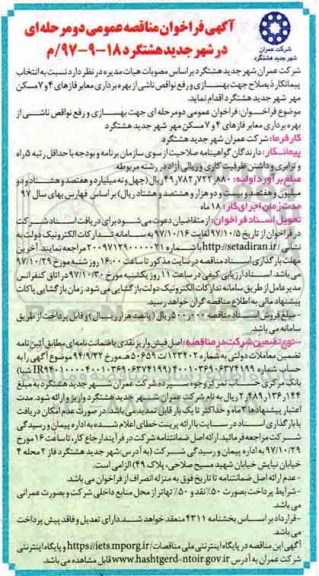 آگهی فراخوان مناقصه عمومی دو مرحله ای
در شهر جدید هشتگرد ۱۸-۹-۹۷/م
شرکت عمران
شهر جدید هشتگرد
شرکت عمران شهر جدید هشتگرد بر اساس مصوبات هیات مدیره در نظر دارد نسبت به انتخاب
پیمانکار ذیصلاح جهت بهسازی و رفع نواقص ناشی از بهره برداری معابر فازهای ۴ و ۷ مسکن
مهر شهر جدید هشتگرد اقدام نماید.
موضوع فراخوان: فراخوان عمومی دو مرحله ای جهت بهسازی و رفع نواقص ناشی از
بهره برداری معابر فازهای ۴ و ۷ مسکن مهر شهر جدید هشتگرد
کارفرما: شرکت عمران شهر جدید هشتگرد
پیمانکار: دارندگان گواهینامه صلاحیت از سوی سازمان برنامه و بودجه با حداقل رتبه ۵ راه
و ترابری و داشتن ظرفیت کاری و ریالی آزاد در رشته مربوطه
مبلغ برآورد اولیه: ریال (چهل و نه میلیارد و هفتصد و هشتاد و دو
میلیون و هفتصد و بیست و دو هزار و هشتصد و هشتاد ریال) بر اساس فهارس بهای سال ۹۷
مدت زمان اجرای کار: ۱۸ ماه
تحویل اسناد فراخوان: از متقاضیان دعوت می شود برای دریافت اسناد شرکت
در فراخوان از تاریخ ۹۷/۱۰/۵ لغایت ۹۷/۱۰/۱۶ به سامانه تدارکات الکترونیک دولت به
نشانی http://setadiran.ir با شماره ۲۰۰۹۷۱۲۹۰۰۰۰۰۲۱ مراجعه نمایند. آخرین
مهلت بارگذاری اسناد مناقصه در سایت مذکور تا ساعت ۱۶:۰۰ روز شنبه مورخ ۹۷/۱۰/۲۹
می باشد. اسناد ارزیابی کیفی در ساعت ۱۱ روز یکشنبه مورخ ۹۷/۱۰/۳۰ در اتاق کنفرانس
مدیر عامل از طریق سامانه تدارکات الکترونیک دولت بازگشایی می شود. زمان بازگشایی پاکات
پیشنهاد مالی به اطلاع مناقصه گران خواهد رسید.
-مبلغ فروش اسناد مناقصه ۵۰۰،۰۰۰ ریال (پانصد هزار ریال) و قابل پرداخت از طریق
سامانه می باشد.
-نوع تضمین شرکت در مناقصه: اصل فیش واریز نقدی یا ضمانت نامه ای مطابق آیین نامه
تضمین معاملات دولتی به شماره ۱۲۳۴۰۲/ت ۵۰۶۵۹ ه‍ مورخ ۹۴/۹/۲۲ موضوع آگهی را به
حساب شماره
بانک مرکزی حساب تمرکز وجوه سپرده شرکت عمران شهر جدید هشتگرد به مبلغ
۲،۴۸۹،۱۳۶،۱۴۴ ریال به نفع شرکت عمران شهر جدید هشتگرد واریز و ارائه شود. مدت
اعتبار پیشنهادها ۳ ماه و حداکثر تا یک بار قابل تمدید می باشد. در صورت عدم امکان دریافت
یا بارگذاری اسناد در سایت با ارائه پرینت خطای اعلام شده به اداره پیمان و رسیدگی
شرکت مراجعه فرمائید. ارائه اصل ضمانتنامه شرکت در فرآیند ارجاع کار تا ساعت ۱۶ مورخ
۹۷/۱۰/۲۹ به اداره پیمان و رسیدگی شرکت (به آدرس: شهر جدید هشتگرد فاز ۲ محله ۴
خیابان نیایش خیابان شهید مسیح صلاحی، پلاک ۴۹) الزامی است.
-عدم ارائه اصل ضمانتنامه تا تاریخ فوق به منزله انصراف از فراخوان می باشد.
-شرایط پرداخت بصورت ۵۰٪ نقد و ۵۰٪ تهاتر از محل منابع داخلی شرکت و بصورت عمرانی
می باشد.
-قرارداد بر اساس بخشنامه ۴۳۱۱ منعقد خواهد شد. دارای تعدیل و فاقد پیش پرداخت
می باشد.
آگهی این مناقصه در پایگاه اینترنتی ملی مناقصات https://iets.mporg.ir و پایگاه اینترنتی
شرکت عمران به آدرس www.hashtgerd-ntoir.gov.ir قابل مشاهده می باشد.